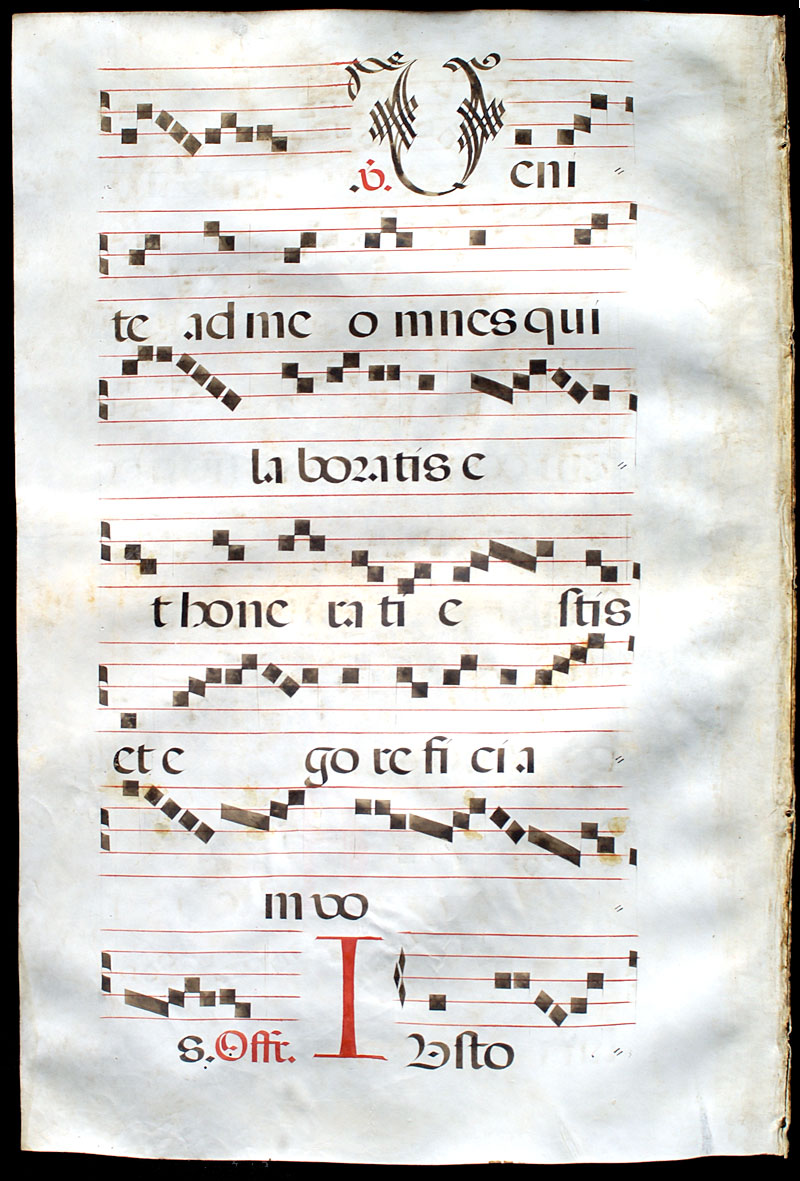 .v. Veni
te ad me omnes qui
laboratis e
t honerati estis
et ego reficia
m vo
s. Offr. Iusto